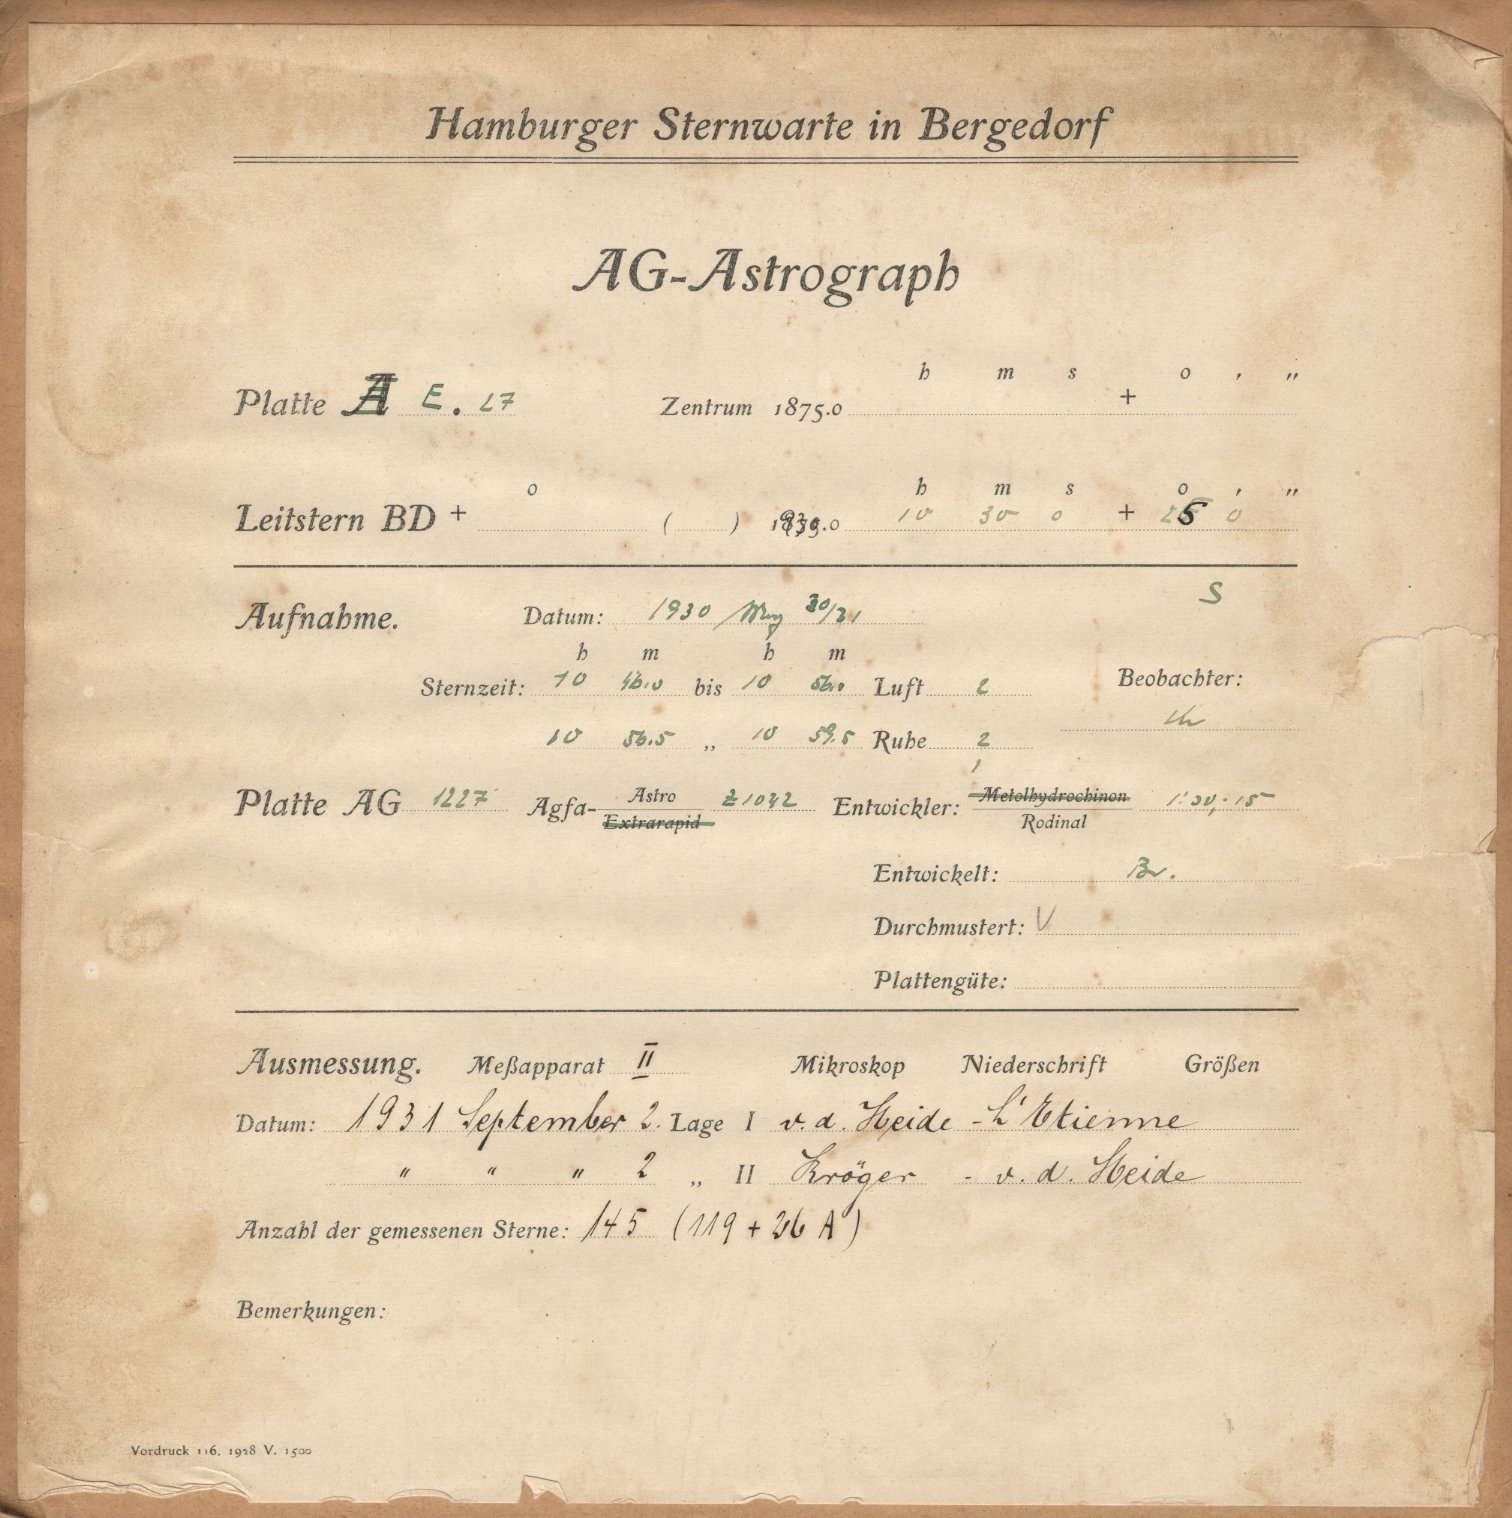 Hamburger Sternwarte in Bergedorf
AG-Astrograph
h m s o , „
Platte A E. 27 Zentrum 1875.0 +
o h m s o , „
Leitstern BD + ( ) .0 10 30 0 + 25 0
S
Aufnahme. Datum: 1930 30/31
h m h m
Sternzeit: 10 46.0 bis 10 56.0 Luft 2 Beobachter:
10 56.5 „ 10 59.5 Ruhe 2
Platte AG 1227 Agfa- Astro Z1032 Entwickler: Metolhydrochinon 1:20, 15
Extrarapid Rodinal
Entwickelt: Br.
Durchmustert: V
Plattengüte:
Ausmessung. Meßapparat II Mikroskop Niederschrift Größen
Datum: 1931 September 2. Lage I v. d. Heide - L'Etienne
" " " 2 „ II Kröger - v. d. Heide
Anzahl der gemessenen Sterne: 145 (119 + 26 A)
Bemerkungen:
Vordruck 116. 1928 V. 1500